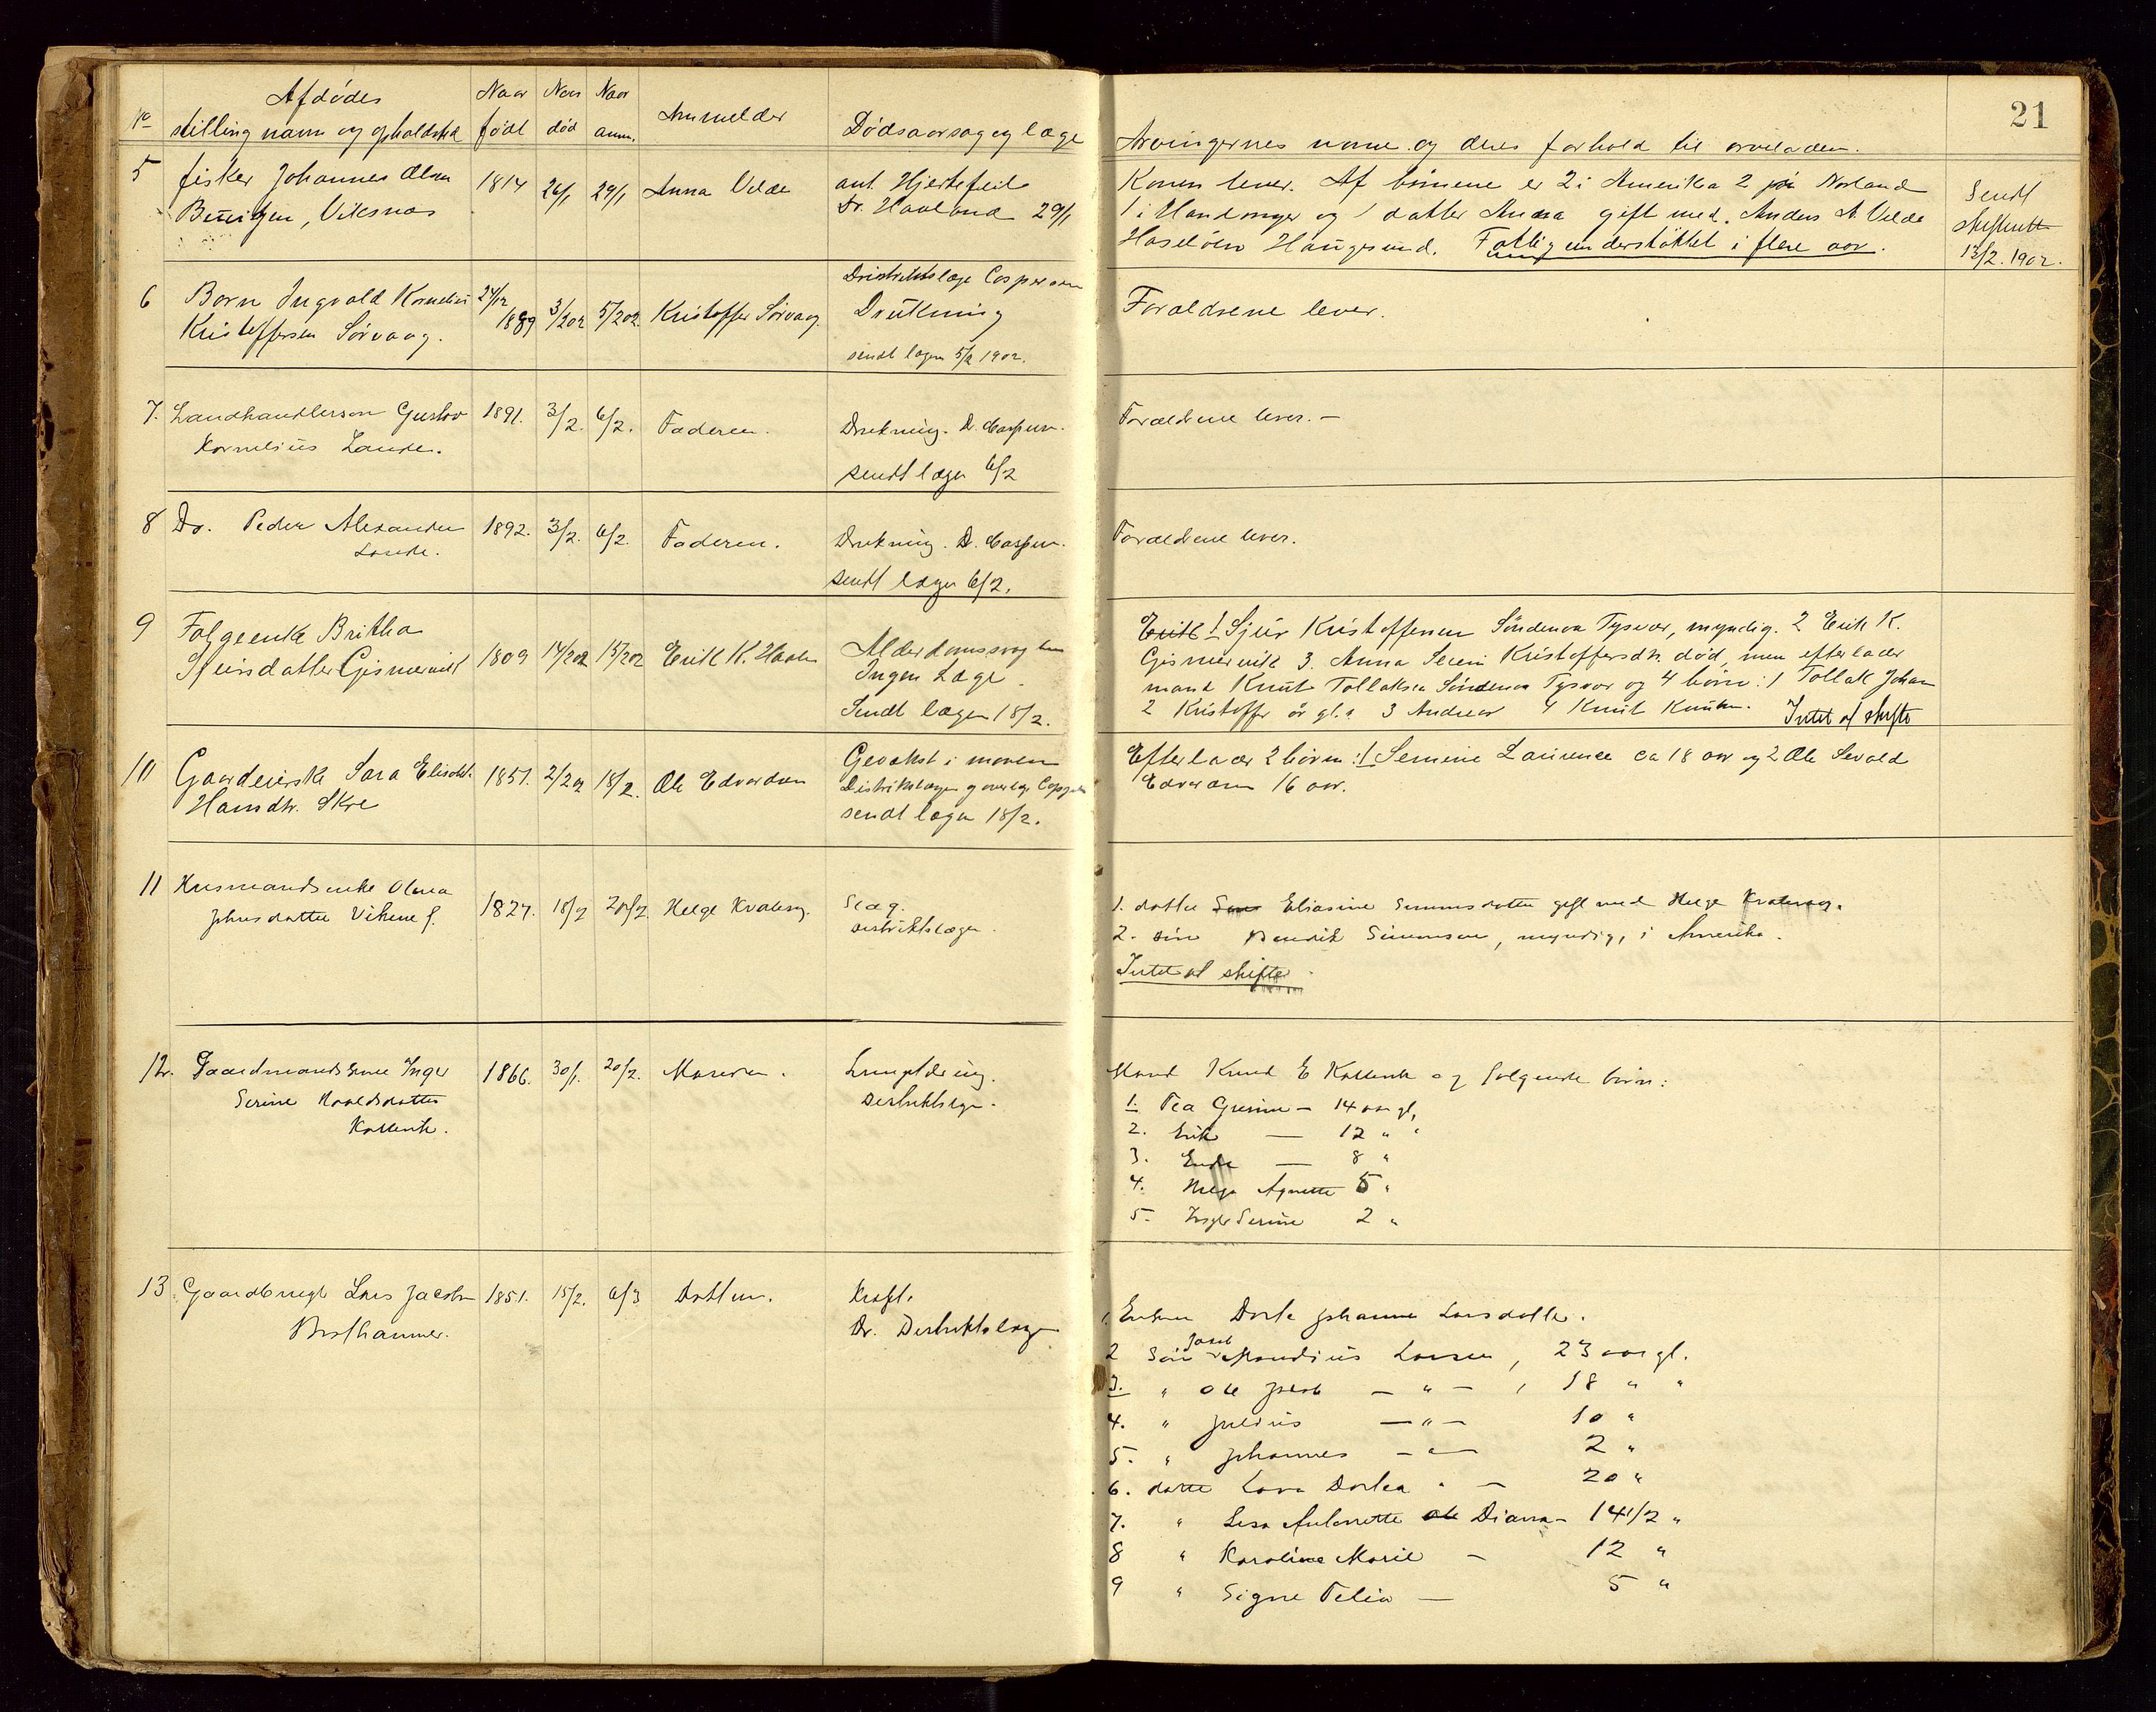 21
No
Afdødes
stilling navn og opholdsted
Naar
født
Naar
død
Naar
anm.
Anmelder
Dødsaarsag og læge
Arvingernes navne og deres forhold til arveladeren.
5
fisker Johannes Olsen
Viksnæs
1814
26/1
29/1
Anna Velde
ant. Hjertefeil
Dr. Haaland 29/1
Konen lever. Af børnene er 2 i Amerika 2 på Norland
1 i Hardanger og 1 datter Anna gift med Anders A. Velde
Haugesund. Fattigunderstøttet i flere aar.
Sendt
skifteret
13/2. 1902.
6
Barn Ingvald Kornelius
Kristoffersen Sørvaag.
24/12
1889
3/2 02
5/2 02
Kristoffer Sørvaag.
Distriktslæge Caspersen
Drukning
sendt lægen 5/2 1902.
Forældrene lever.
7.
Landhandlerson Gustav
Kornelius Lande.
1891.
3/2.
6/2.
Faderen.
Drukning. Dr. Caspersen.
sendt lægen 6/2
Forældrene lever. —
8
Do. Peder Alexander
Lande.
1892.
3/2.
6/2.
Faderen.
Drukning. D. Caspersen.
sendt lægen 6/2.
Forældrene lever.
9
Følgeenke Britha
Sjursdatter Gismervik
1809
14/2 02
15/2 02
Erik K.
Alderdomssvaghed
Ingen Læge.
Sendt lægen 18/2.
Erik 1 Sjur Kristoffersen Søndenaa Tysvær, myndig. 2 Erik K.
Gismervik 3. Anna Kristoffersdtr. død, men efterlader
mand Knut Tollaksen Søndenaa Tysvær og 4 børn: 1 Tollak Johan
2 Kristoffer 3 Andreas 4 Knut Intet at skifte
10
Gaardeierske Sara Elisabet
Hansdtr. Skre
1851.
18/2.
Ole Edvardsen
Gevækst i maven
sendt lægen 18/2.
Efterlader 2 børn: 1 Laurense ca 18 aar og 2 Ole Sevald
Edvardsen 16 aar.
11
Husmandsenke Olena
Johnsdatter
1827.
18/2
20/2
Helge
Slag.
Distriktslægen.
1. datter Eliasine Simonsdatter gift med Helge
2. søn Bendik Simonsen, myndig, i Amerika.
Intet at skifte
12.
Gaardmandskone Inger
Serine
1866.
30/1.
20/2.
Distriktslægen.
Mand Knud E og følgende børn:
1. Tea — 14 aar gl.
2. Erik — 12 "
3. Endre — 8 "
4. Helga Agnette 5 "
5. Serine 2 "
13
Gaardbruger Lars Jacobsen
1851.
15/2.
6/3
Datteren.
Kræft.
Dr. Distriktslægen
1. Enken Dorte Johanne Larsdatter.
2 Søn Jacob Mandius Larsen, 23 aar gl.
3. " Ole Jakob — " —, 18 " "
4. " Julius — " — 10 "
5. " Johannes — " — 2 "
6. datter Lava Dortea " — 20 "
7. " Antonette Diana — 14 1/2 "
8 " Karoline Marie — 12 "
9 " Signe Telia — 5 "